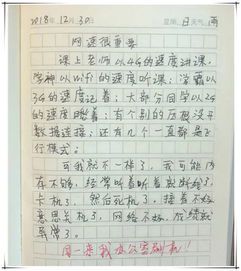 2018年12月30日 星期日 天气雨
网速很重要
课上老师以4G的速度讲课，
学神以Wifi的速度听课；学霸以
3G的速度记着；大部分同学以2G
的速度瞧着；有个别的压根没开
数据连接；还有几个一直都是飞
行模式；
可我就不一样了，我可能内
存不够，经常听着听着就
卡机了，然后死机了，接着不好
意思关机了，网络不好，成绩就
异常了。
周一来我办公室刷机！